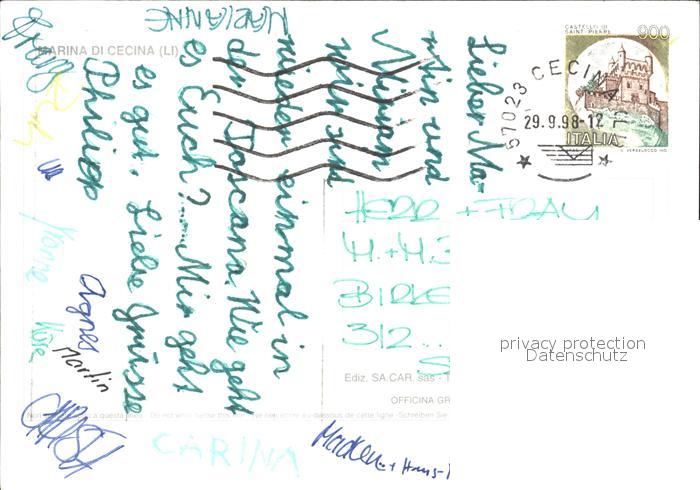 MARINA DI CECINA (LI)
CASTELLO DI
SAINT-PIERRE
900
ITALIA
57023 CECINA
29.9.98-12
Lieber Ma-
rtin und
Miriam
wir sind
wieder einmal in
der Toscana. Wie geht
es Euch?... Mir geht
es gut. Liebe Grüsse
Philipp
MARIANNE
Franz
Yvonne
Agnes
Martin
CARINA
Madlen + Hans-
HERR + FRAU
M. + M. 
BIRKE
312...
S
privacy protection
Datenschutz
Ediz. SA.CAR. sas - 
OFFICINA GR